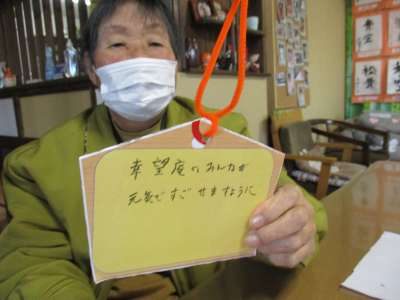 幸望庵のみんなが
元気ですごせますように